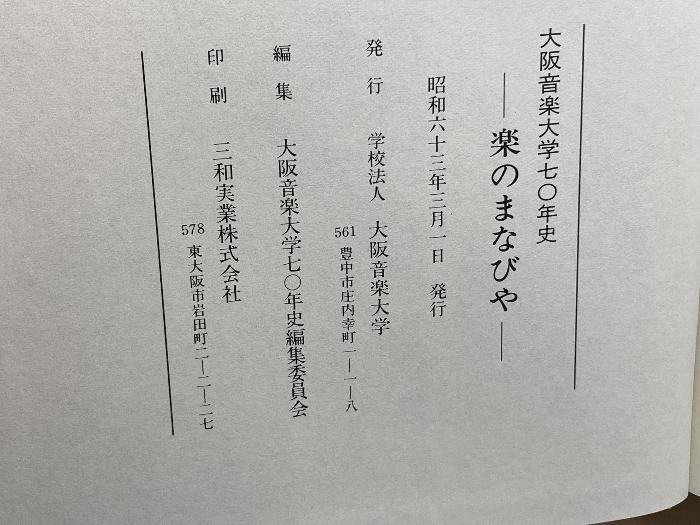 大阪音楽大学七〇年史
―楽のまなびや―
昭和六十三年三月一日 発行
発行 学校法人 大阪音楽大学
561 豊中市庄内幸町一―一―八
編集 大阪音楽大学七〇年史編集委員会
印刷 三和実業株式会社
578 東大阪市岩田町二―二―二七